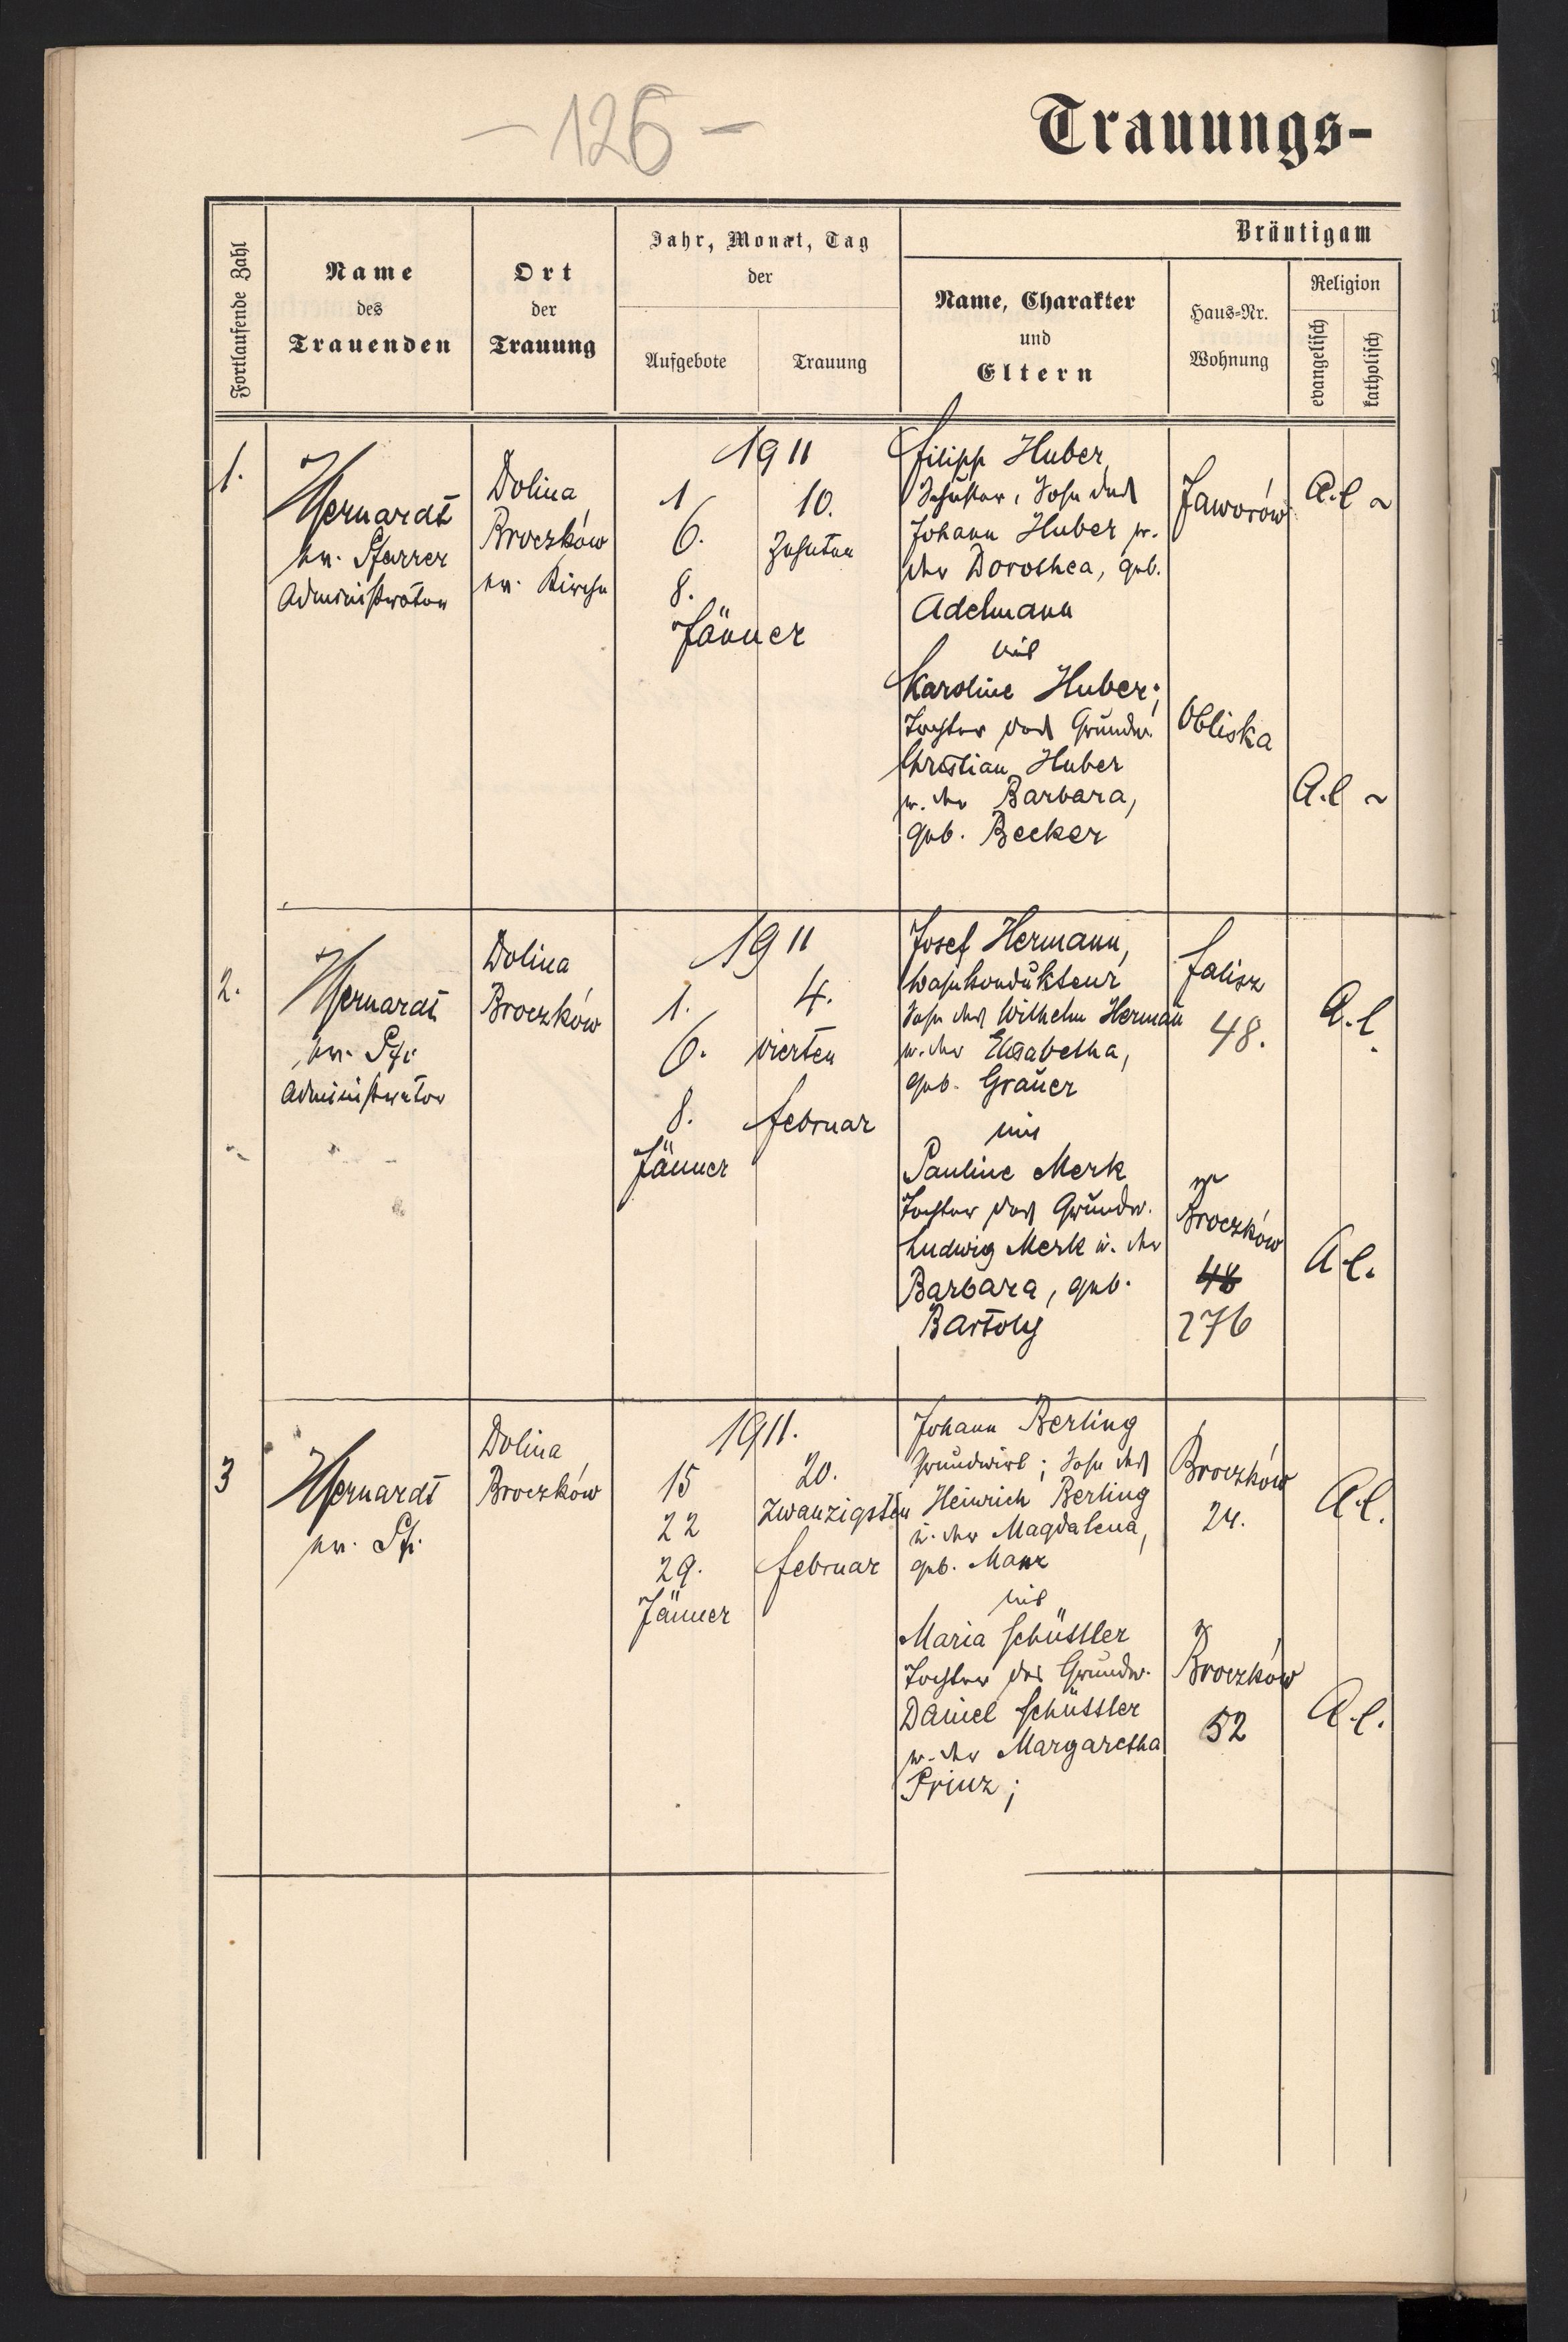 - 126 -
Trauungs-
Fortlaufende Zahl
Name
des
Trauenden
Ort
der
Trauung
Jahr, Monat, Tag
der
Aufgebote
Trauung
Bräutigam
Name, Charakter
und
Eltern
Haus-Nr.
Wohnung
Religion
evangelisch
katholisch
1.
ev. Pfarrer
Administrator
Dolina
Broczków
ev. Kirche
1911
1
6.
8.
Jänner
10.
Zehnten
Filipp Huber,
Schuster, Sohn des
Johann Huber u.
der Dorothea, geb.
Adelmann
mit
Karoline Huber;
Tochter des Grundw.
Christian Huber
u. der Barbara,
geb. Becker
Jaworów
Obliska
A.C ~
A.C ~
2.
ev. Pf.
Administrator
Dolina
Broczków
1911
1.
6.
8.
Jänner
4.
vierten
Februar
Josef Hermann,
Sohn des Wilhelm Herman̄
u. der Elisabetha,
geb. Grauer
mit
Pauline Merk
Tochter des Grundw.
Ludwig Merk u. der
Barbara, geb.
Bartoly
Falisz
48.
Broczków
48
276
A.C.
A.C.
3
ev. Pf.
Dolina
Broczków
1911.
15
22
29.
Jänner
20.
Zwanzigsten
Februar
Johann Berling
Grundwirt; Sohn des
Heinrich Berling
u. der Magdalena,
geb. Manz
mit
Maria Schüssler
Tochter des Grundw.
Daniel Schüssler
u. der Margaretha
Prinz;
Broczków
24.
Broczków
52
A.C.
A.C.